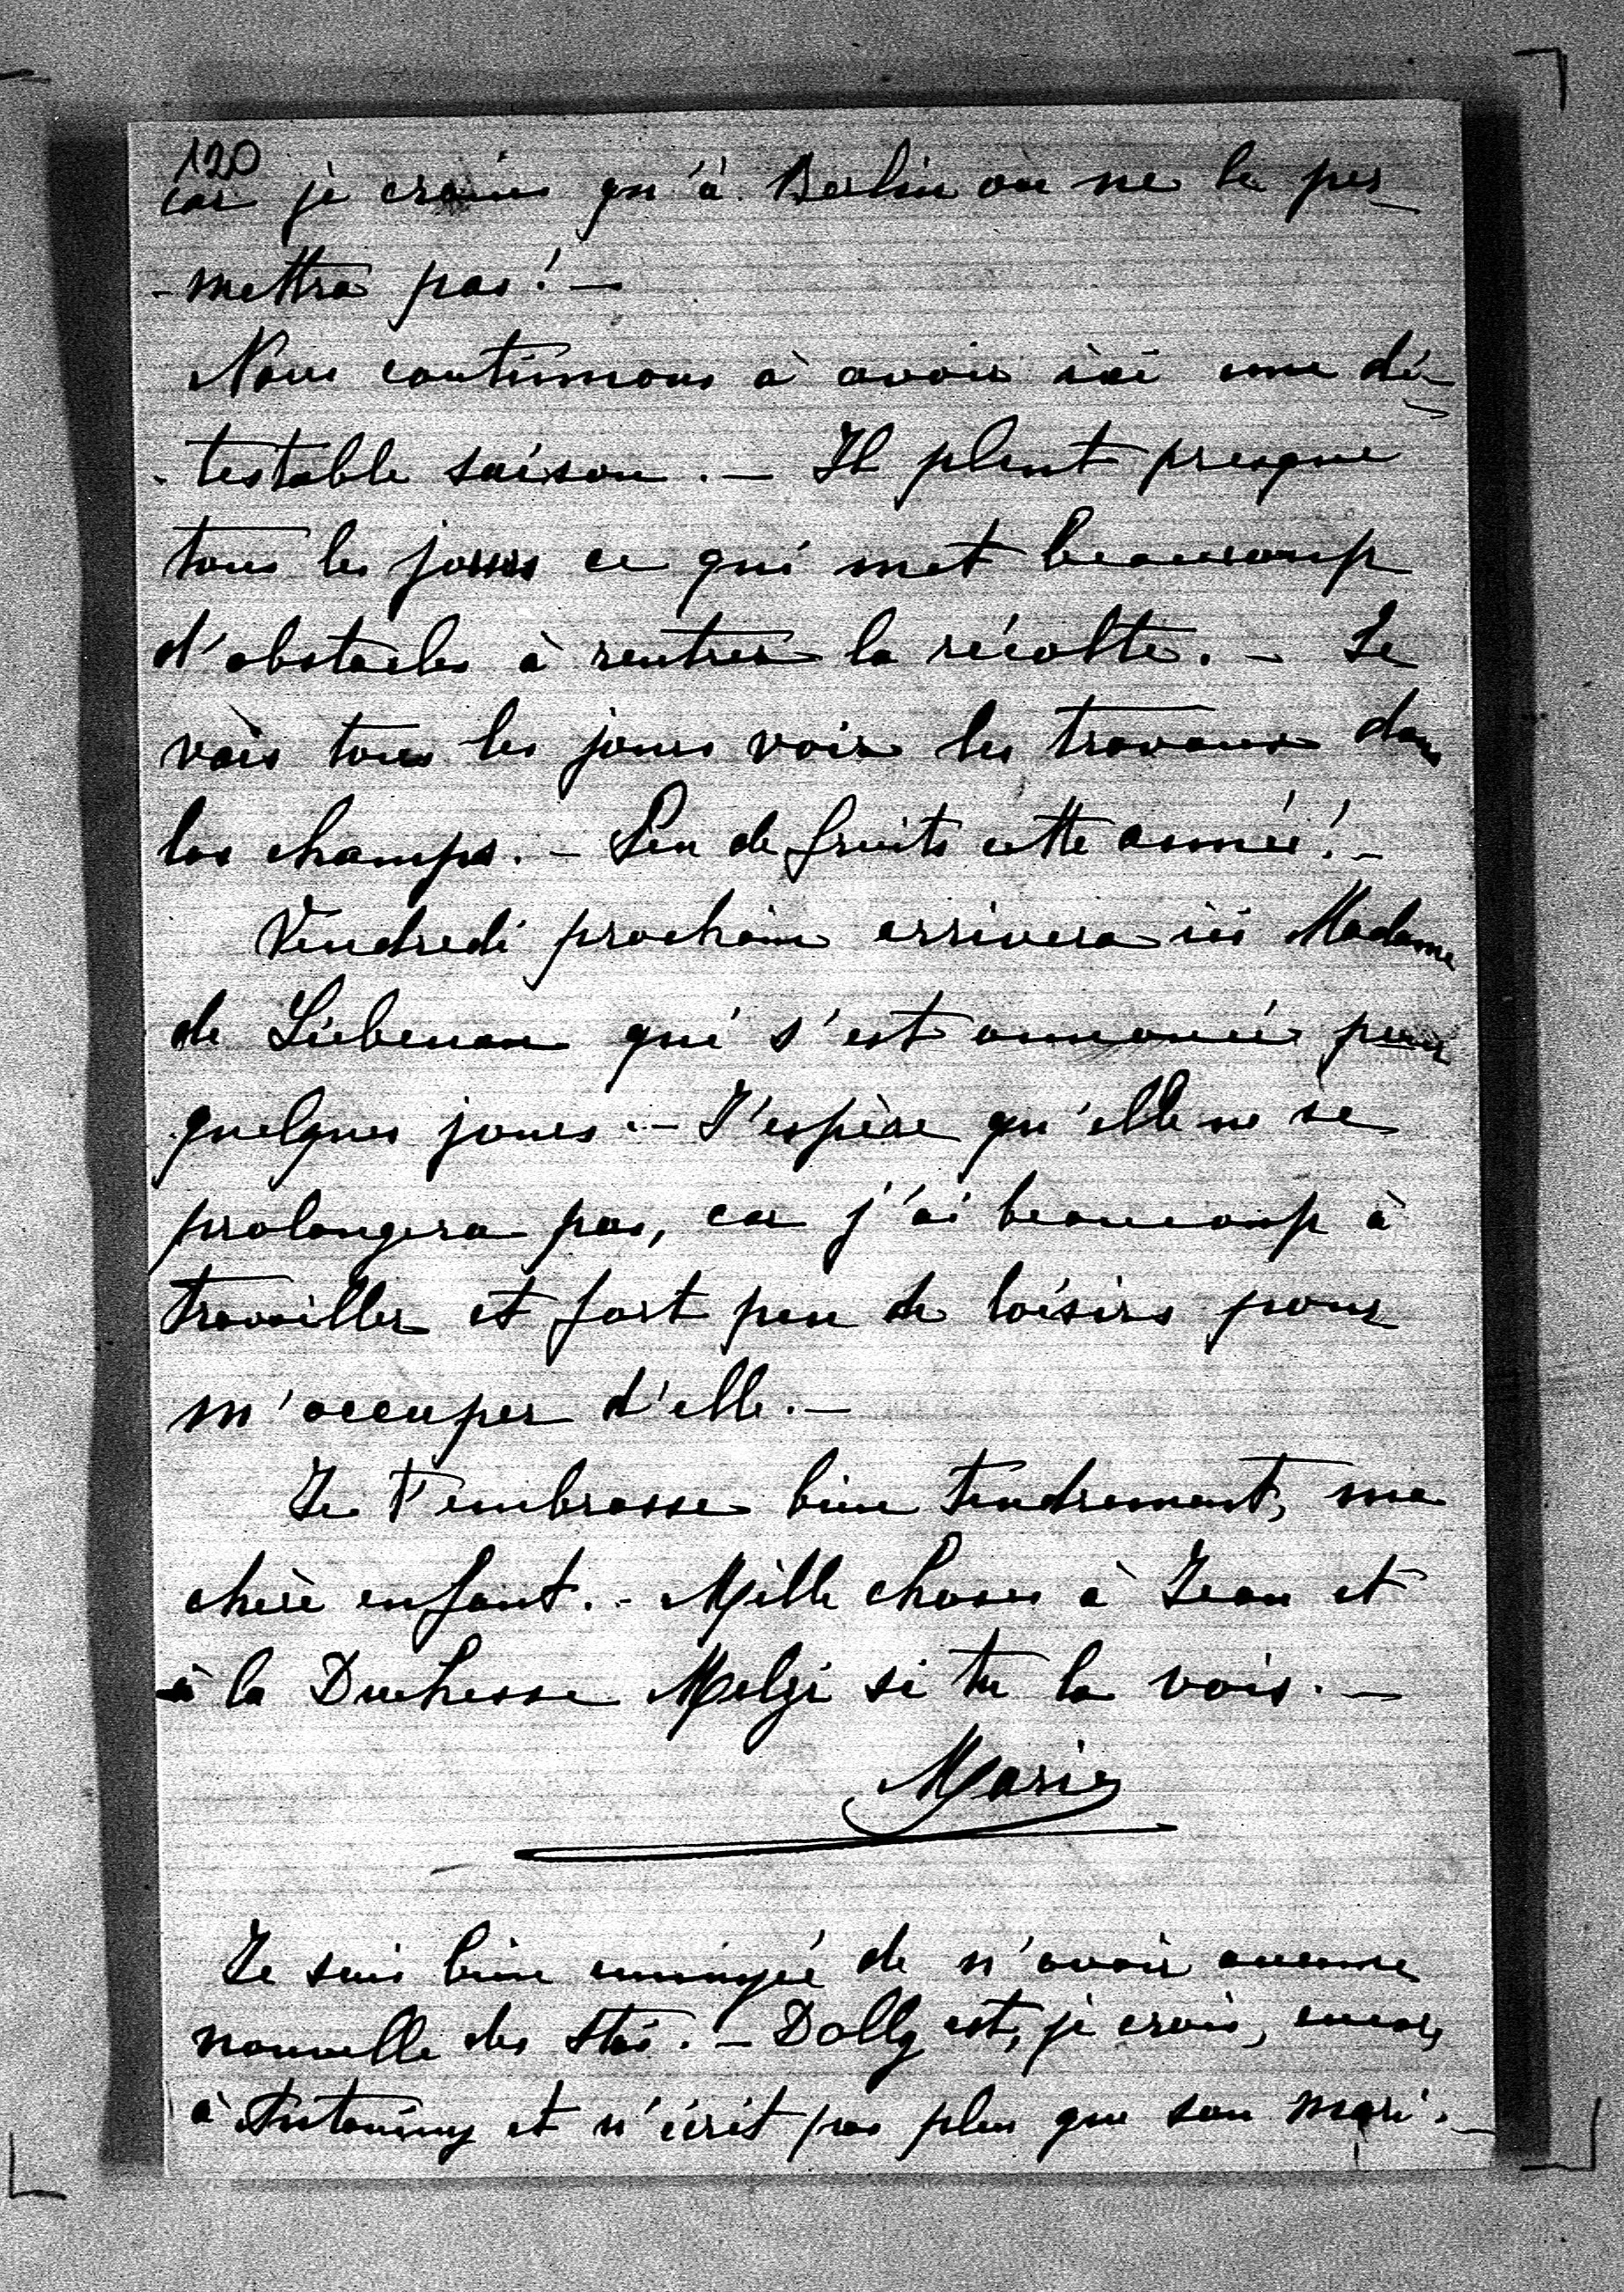 120
car je crains qu'à Berlin on ne le per-
-mettra pas! -
Nous continuons à avoir ici une dé-
-testable saison. - Il pleut presque
tous les jours ce qui met beaucoup
d'obstacles à rentrer la récolte. - Je
vais tous les jours voir les travaux dans
les champs. - Peu de fruits cette année! -
Vendredi prochain arrivera ici Madame
de Liebenau qui s'est annoncée pour
quelques jours. - J'espère qu'elle ne se
prolongera pas, car j'ai beaucoup à
travailler et fort peu de loisirs pour
m'occuper d'elle. -
Je t'embrasse bien tendrement, ma
chère enfant. - Mille choses à Jean et
à la Duchesse Melzi si tu la vois. -
Marie
Je suis bien ennuyée de n'avoir aucune
nouvelle des . - Dolly est, je crois, encore
à Antoniny et n'écrit pas plus que son mari. -